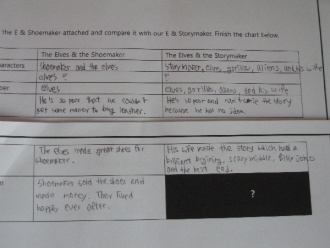 the E & Shoemaker attached and compare it with our E & Storymaker. Finish the chart below.
The Elves & the Shoemaker
The Elves & the Storymaker
aracters
Shoemaker and the elves
elves
Storymaker, elves, gorillas, aliens, and his wife
elves
elves, gorillas, aliens, and his wife
He's so poor that he couldn't
get some money to buy leather.
He's so poor and can't write the story
because he had no idea.
The elves made great shoes for
shoemaker.
His wife made the story which had a
brilliant beginning, scary middle,
and the best end.
Shoemaker sold the shoes and
made money. They lived
happily ever after.
?